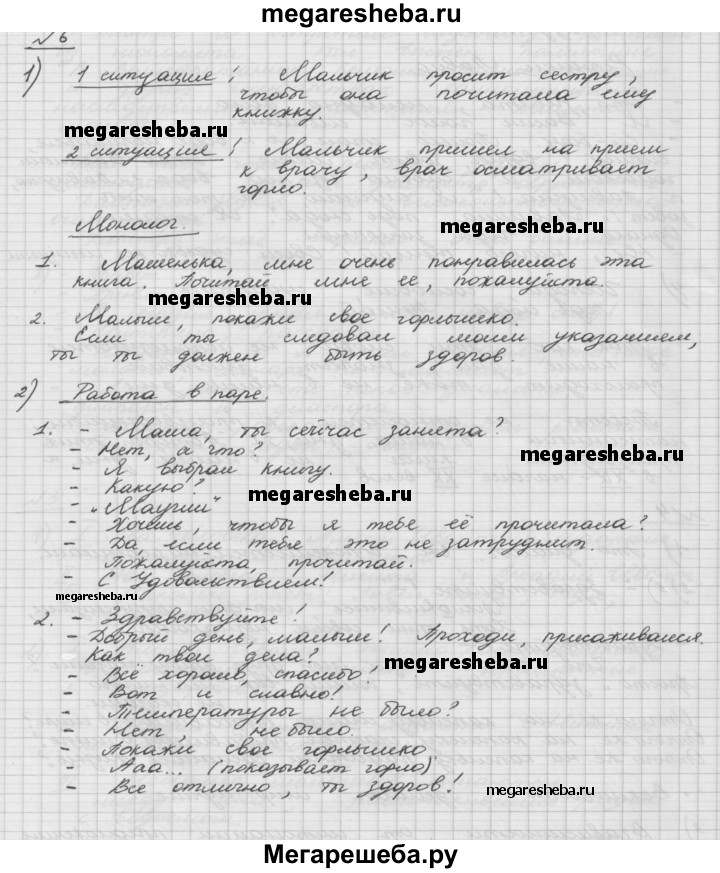 megaresheba.ru
№ 6
1) 1 ситуация: Мальчик просит сестру,
чтобы она почитала ему
книжку.
megaresheba.ru
2 ситуация: Мальчик пришел на прием
к врачу, врач осматривает
горло.
Монолог.
megaresheba.ru
1. Машенька, мне очень понравилась эта
книга. Почитай мне ее, пожалуйста.
megaresheba.ru
2. Малыш, покажи свое горлышко.
Если ты следовал моим указанием,
ты ты должен быть здоров.
2) Работа в паре.
1. - Маша, ты сейчас занята?
- Нет, а что?
megaresheba.ru
- Я выбрал книгу.
- Какую?
megaresheba.ru
- "Маугли"
- Хочешь, чтобы я тебе её прочитала?
- Да, если тебя это не затруднит.
Пожалуйста, прочитай.
- С Удовольствием!
megaresheba.ru
2. - Здравствуйте!
- Добрый день, малыш! Проходи, присаживайся.
Как твои дела?
megaresheba.ru
- Всё хорошо, спасибо!
- Вот и славно!
- Температуры не было?
- Нет, не было.
- Покажи свое горлышко.
- Ааа... (показывает горло).
- Все отлично, ты здоров!
megaresheba.ru
Мегарешеба.ру